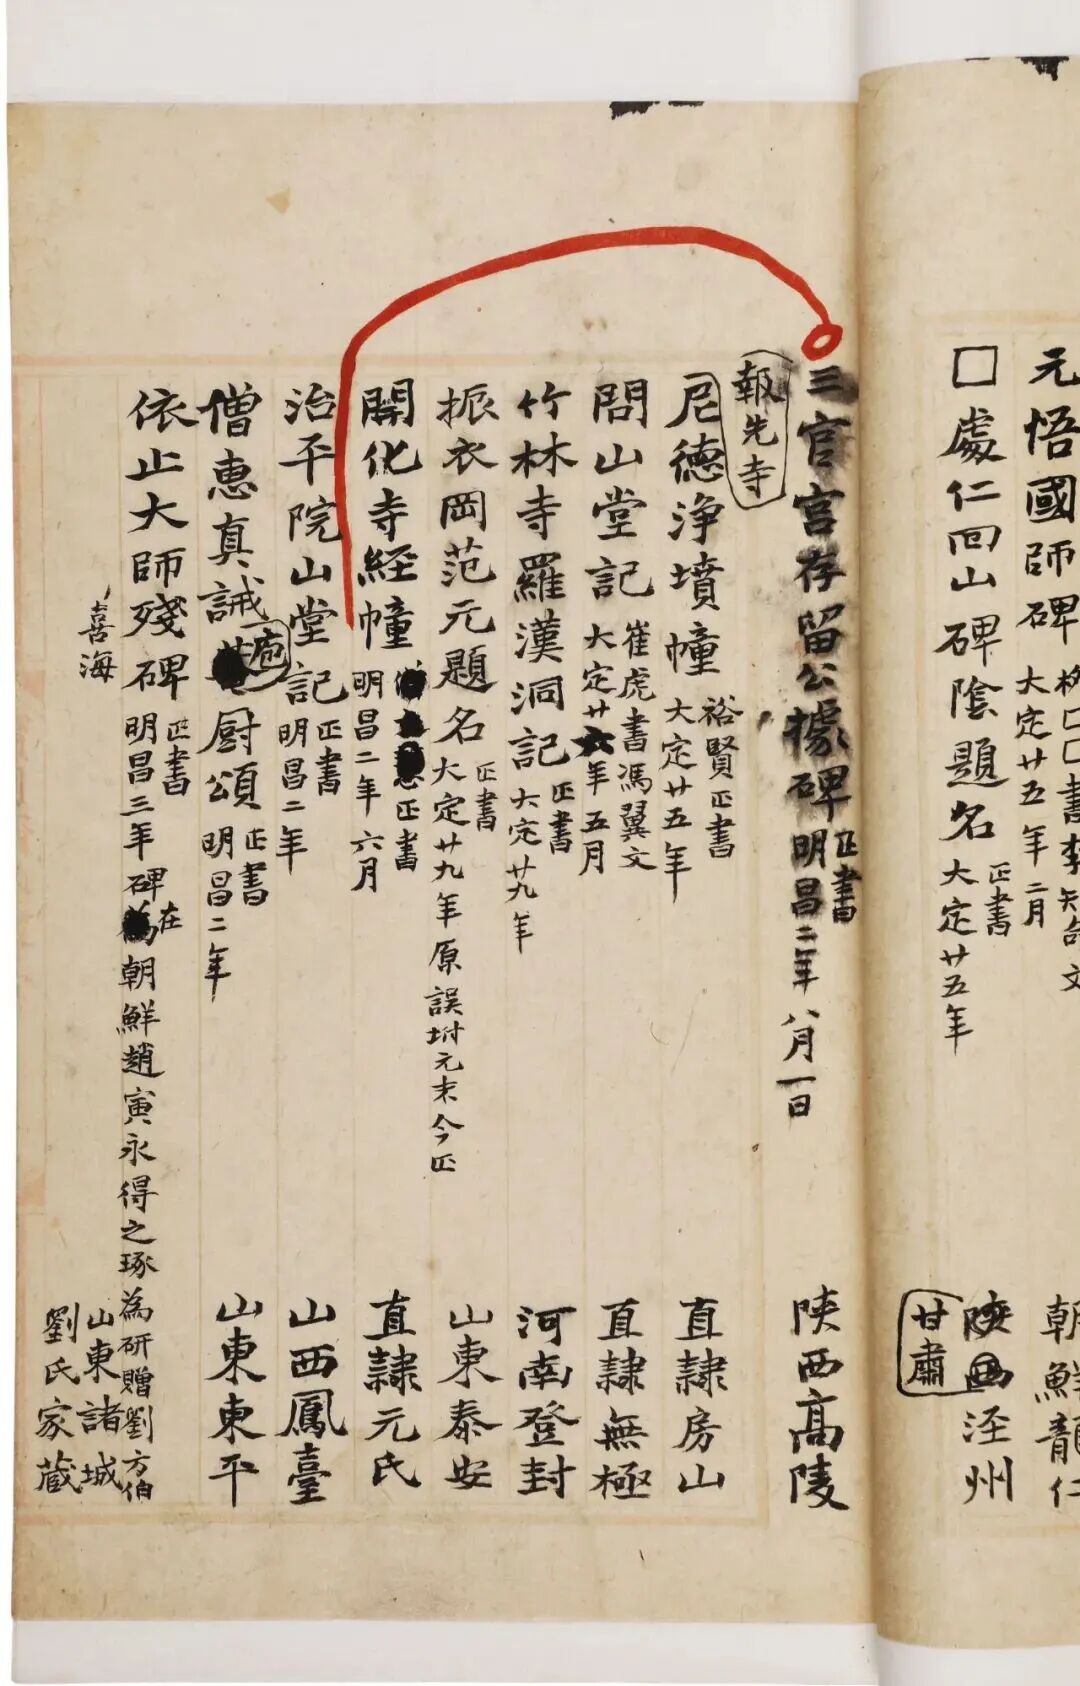 元悟國師碑 大定廿五年二月 朝鮮龍仁
□處仁回山碑陰題名 正書 大定廿五年 陝西涇州
甘肅
三官宮存留公據碑 正書 明昌二年八月一日 陝西高陵
報先寺
尼德淨墳幢 裕賢正書 大定廿五年 直隸房山
問山堂記 崔虎書馮翼文 大定廿六年五月 直隸無極
竹林寺羅漢洞記 正書 大定廿九年 河南登封
振衣岡范元題名 正書 大定廿九年原誤坿元末今正 山東泰安
開化寺經幢 正書 明昌二年六月 直隸元氏
治平院山堂記 正書 明昌二年 山西鳳臺
僧惠真誡庖厨頌 正書 明昌二年 山東東平
依止大師殘碑 正書 明昌三年 碑在朝鮮趙寅永得之琢為研贈劉方伯
喜海 山東諸城
劉氏家藏